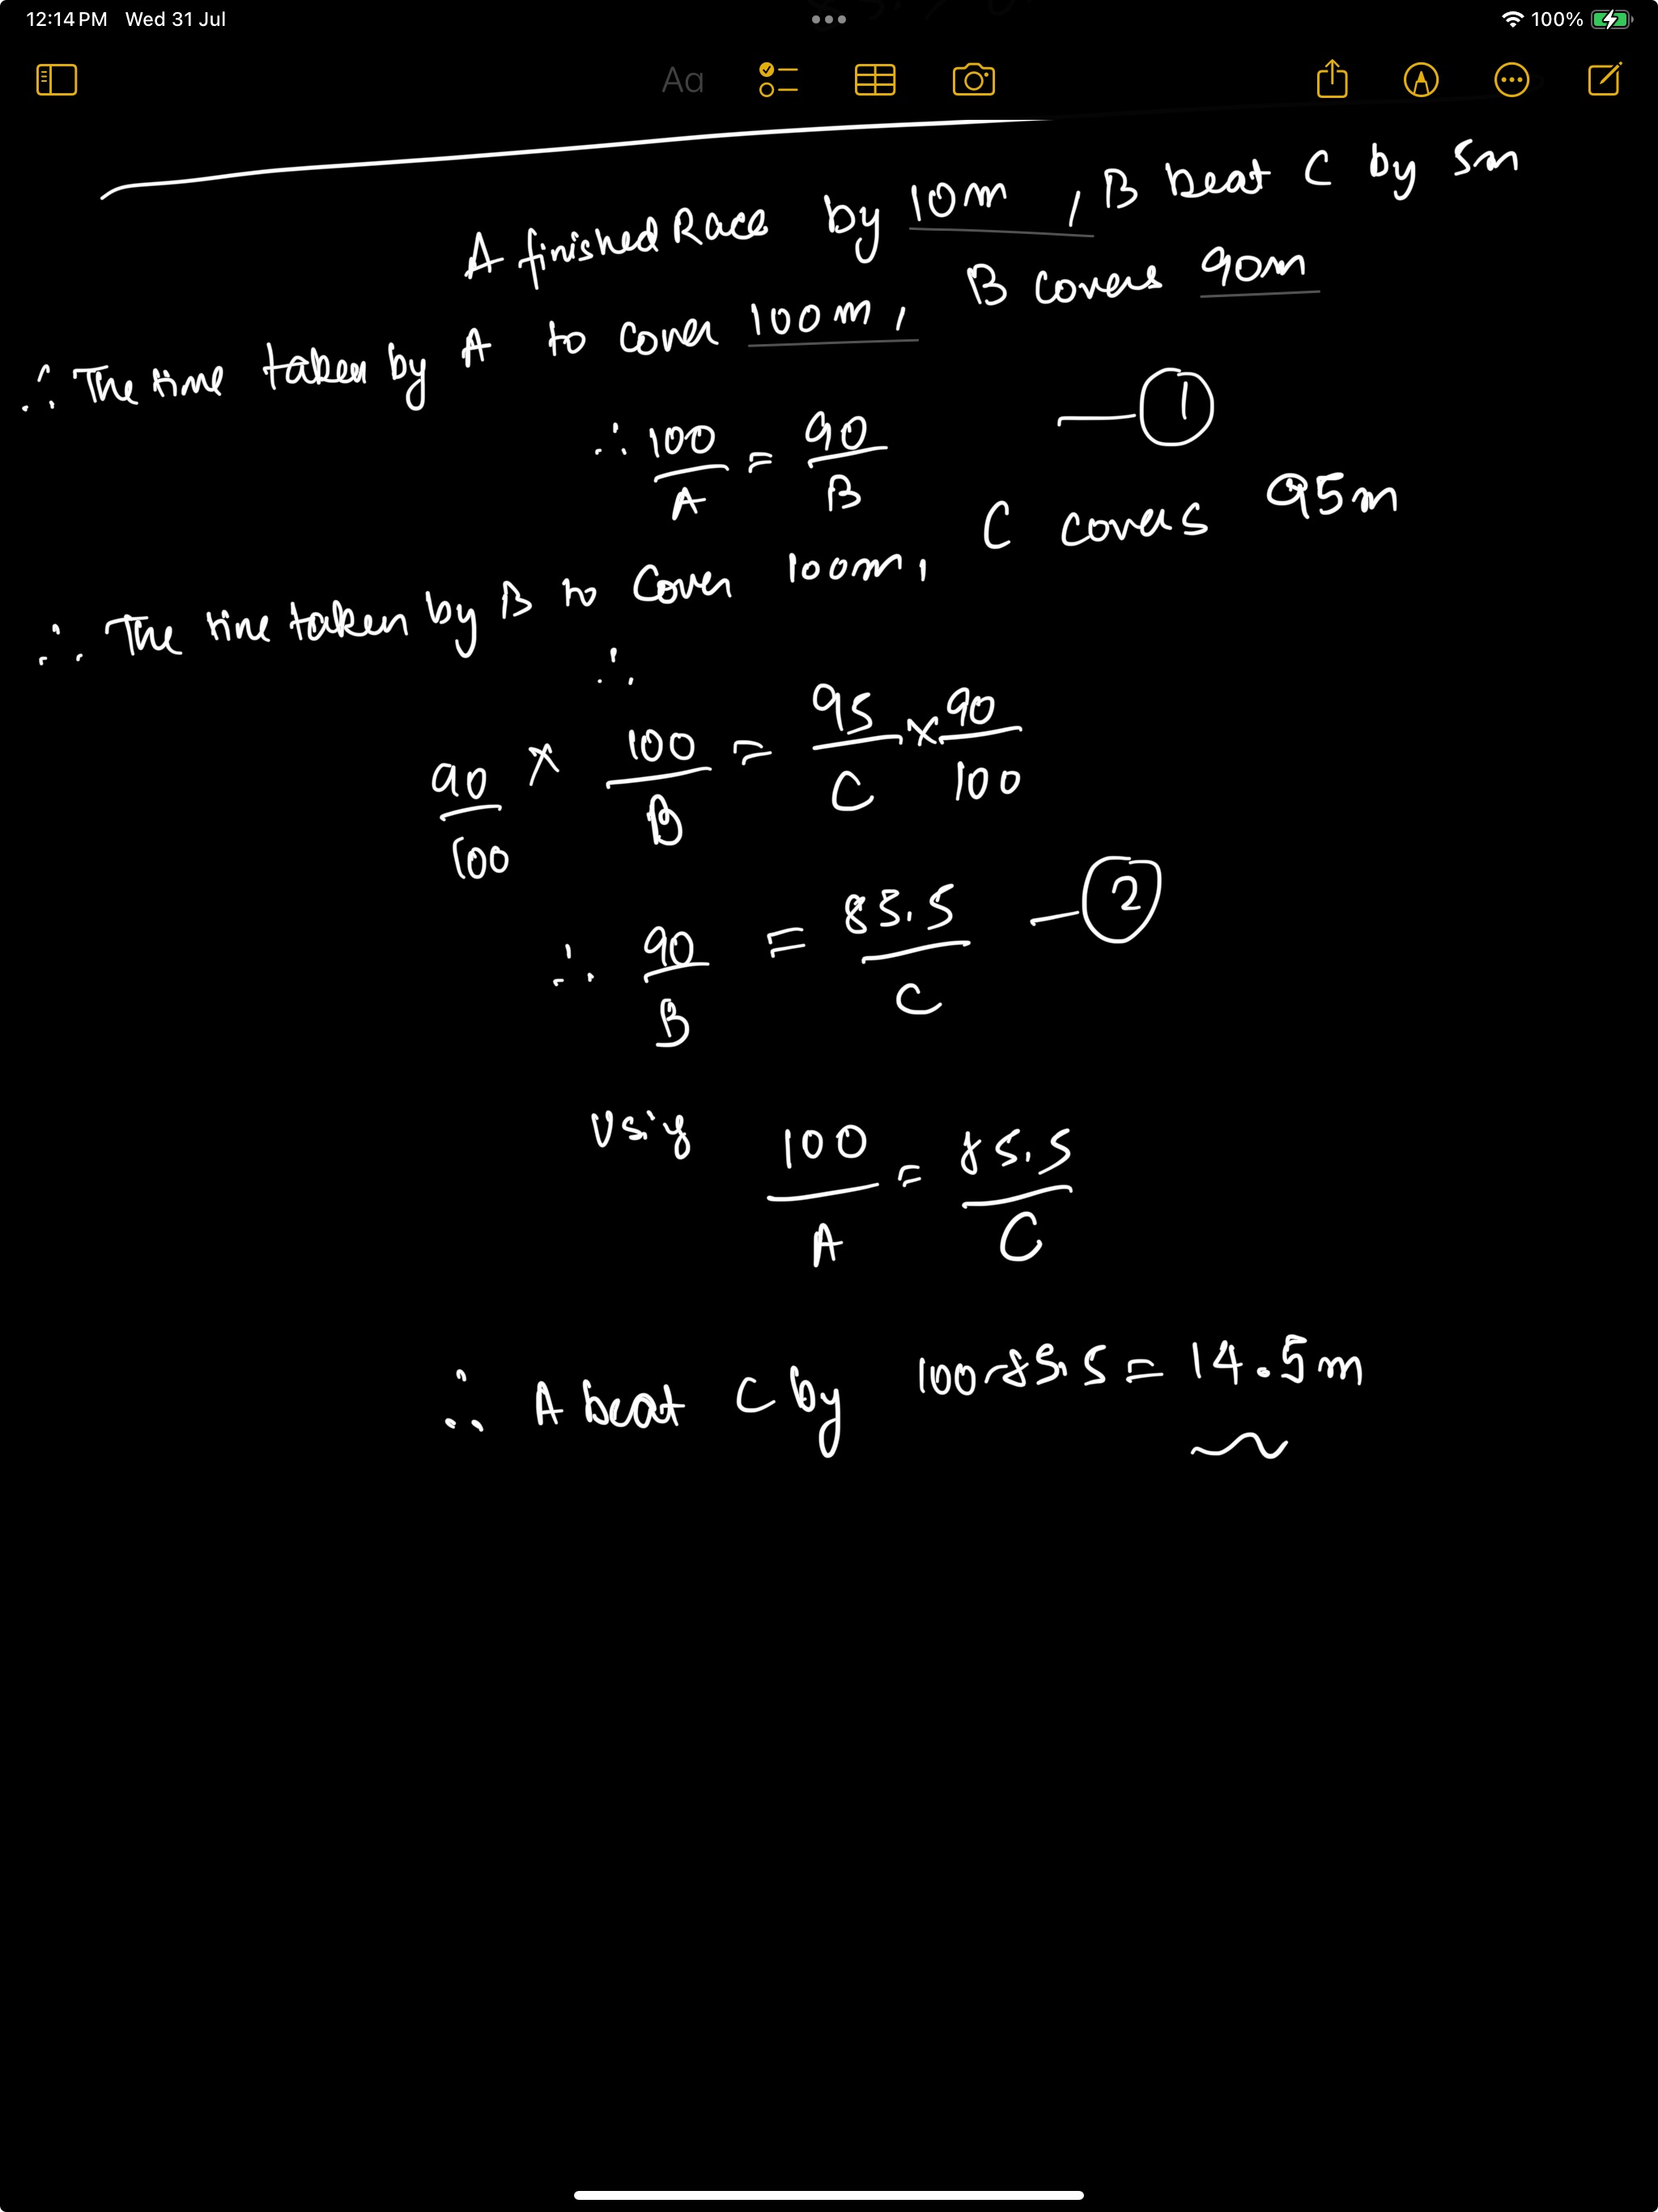 12:14 PM Wed 31 Jul
100%
Aa
A finished Race by 10m , B beat C by 5m
∴ The time taken by A to cover 100m, B covers 90m
∴ 100/A = 90/B —①
∴ The time taken by B to Cover 100m, C covers 95m
∴
90/100 × 100/B = 95/C × 90/100
∴ 90/B = 85.5/C —②
Usiy 100/A = 85.5/C
∴ A beat C by 100-85.5 = 14.5m